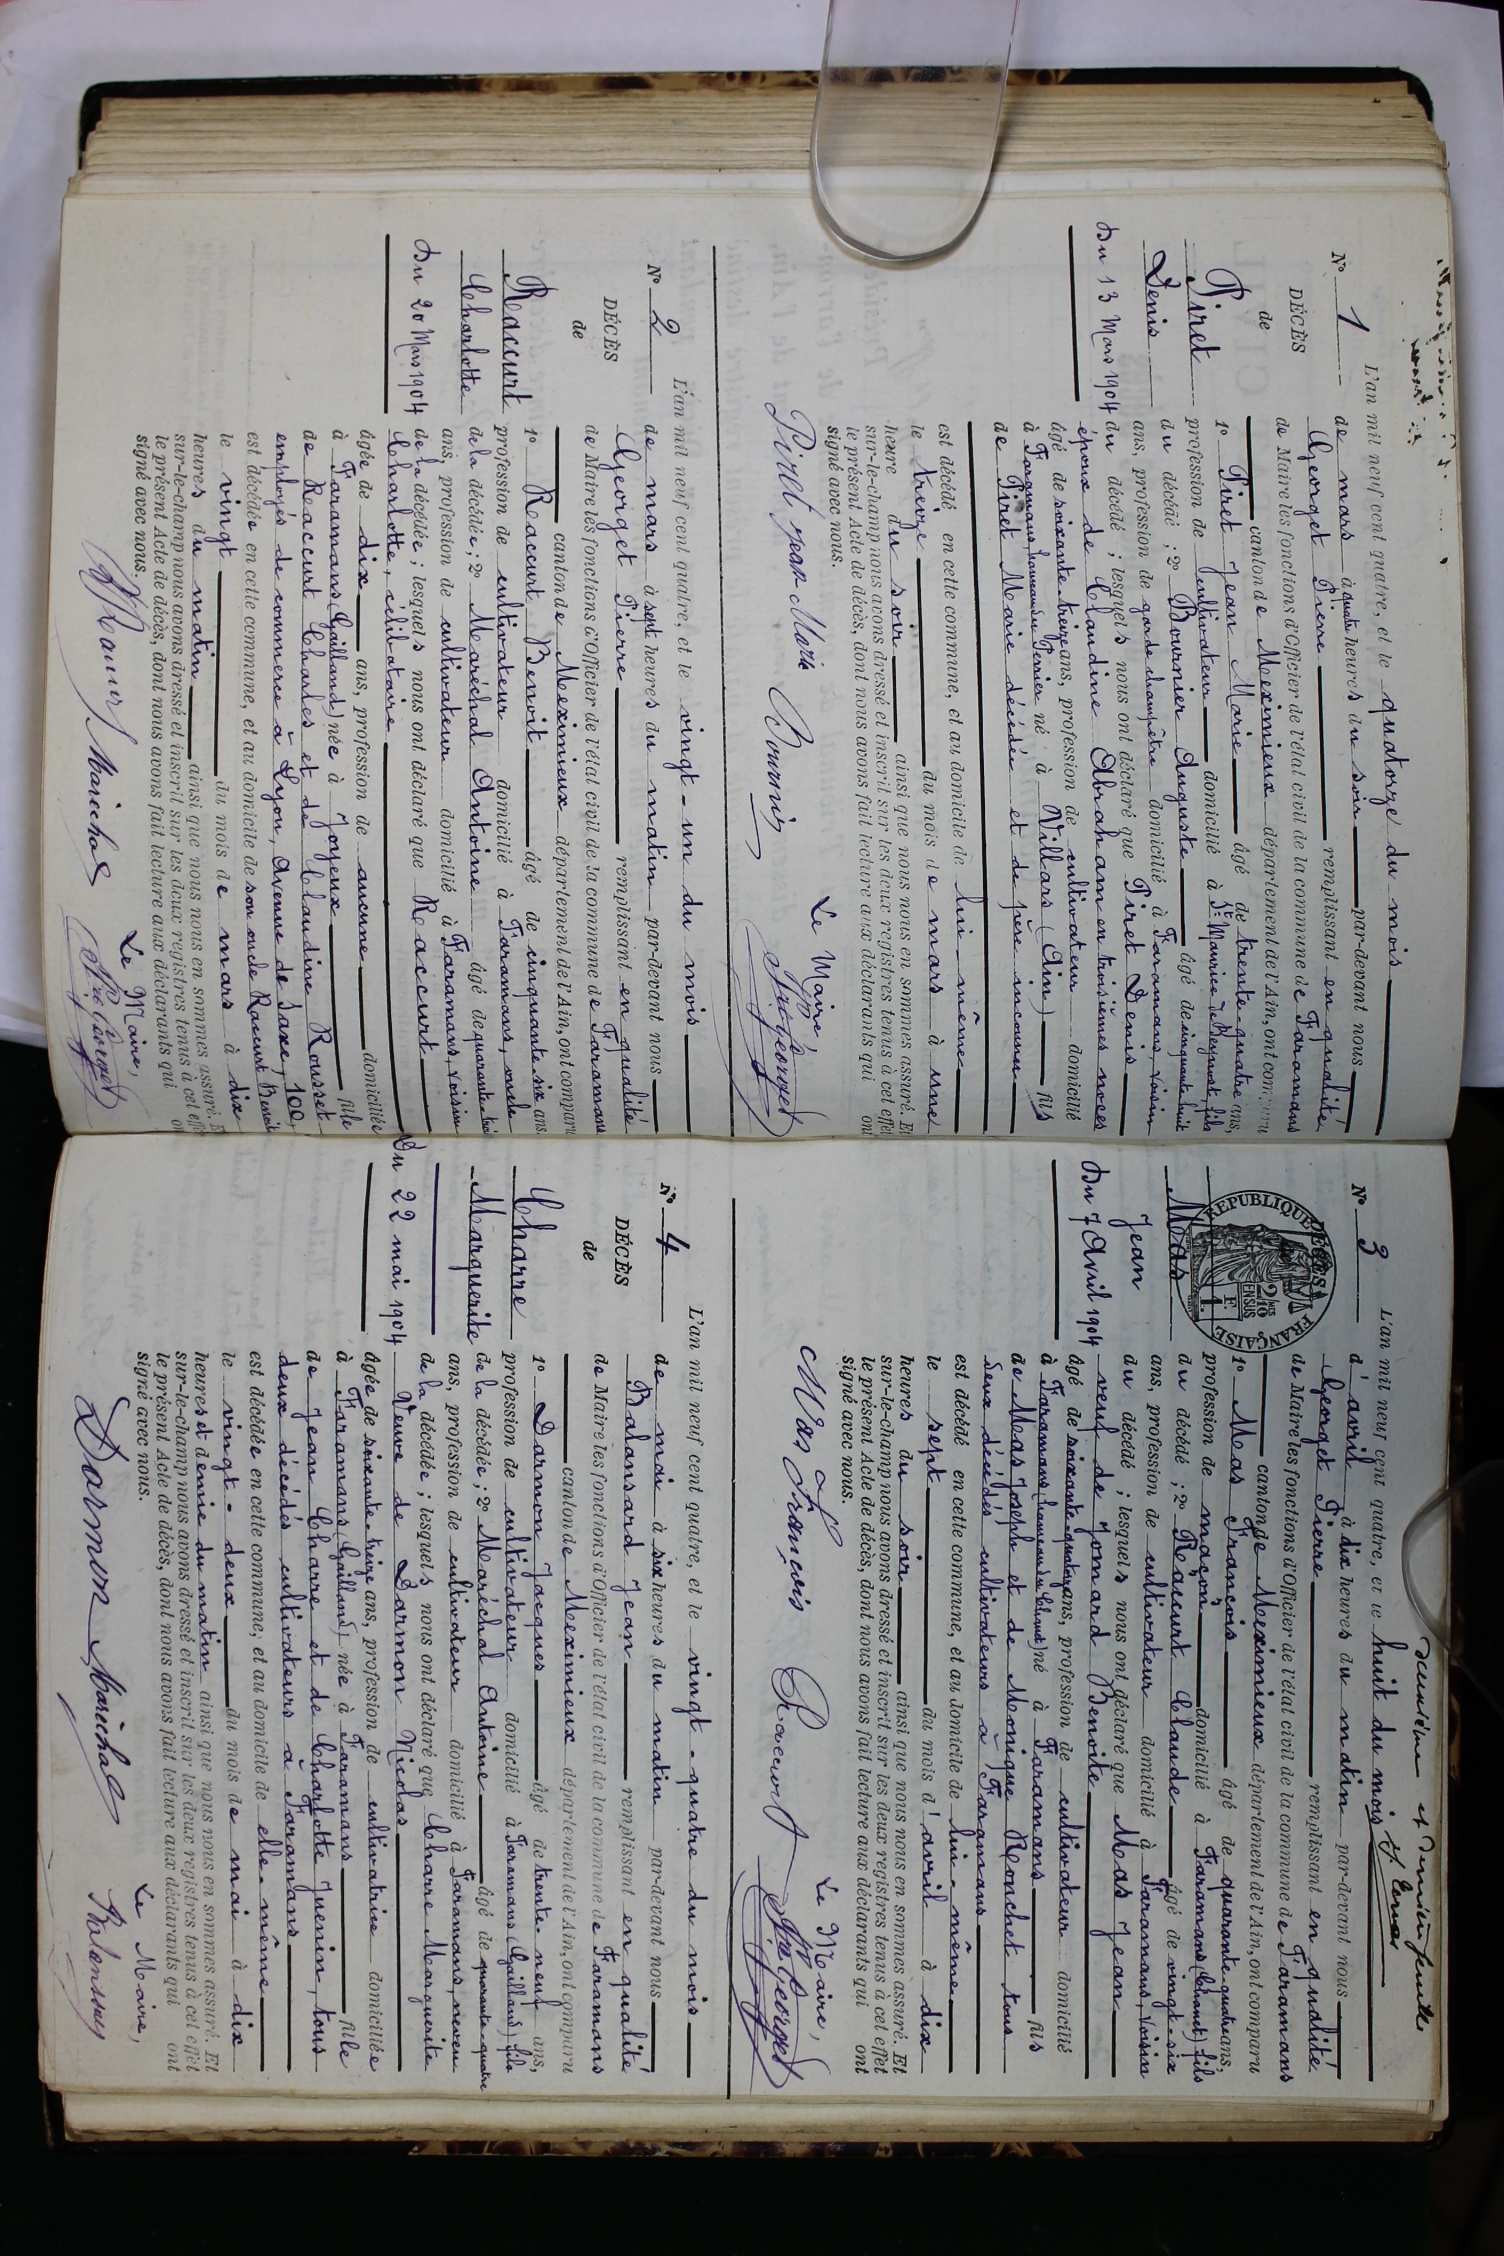 N° 1
DÉCÈS
de
Piret
Denis
Du 13 Mars 1904
L'an mil neuf cent quatre, et le quatorze du mois
de mars à quatre heures du soir par-devant nous
Georget Pierre remplissant en qualité
de Maire les fonctions d'Officier de l'état civil de la commune de Faramans
canton de Meximieux département de l'Ain, ont comparu
1° Piret Jean Marie âgé de trente-quatre ans,
profession de cultivateur domicilié à St Maurice de Beynost, fils
du décédé ; 2° Bournier Auguste âgé de cinquante huit
ans, profession de garde champêtre domicilié à Faramans, voisin
du décédé ; lesquels nous ont déclaré que Piret Denis
époux de Claudine Abraham en troisièmes noces
âgé de soixante-treize ans, profession de cultivateur domicilié
à Faramans, hameau du né à Villars (Ain) fils
de Piret Marie décédée et de père inconnu
est décédé en cette commune, et au domicile de lui-même
le treize du mois de mars à une
heure du soir ainsi que nous nous en sommes assuré. Et
sur-le-champ nous avons dressé et inscrit sur les deux registres tenus à cet effet
le présent Acte de décès, dont nous avons fait lecture aux déclarants qui ont
signé avec nous.
Le Maire,
Piret jean Marie Bournier Georget
N° 2
DÉCÈS
de
Raccurt
Charlotte
Du 20 Mars 1904
L'an mil neuf cent quatre, et le vingt-un du mois
de mars à sept heures du matin par-devant nous
Georget Pierre remplissant en qualité
de Maire les fonctions d'Officier de l'état civil de la commune de Faramans
canton de Meximieux département de l'Ain, ont comparu
1° Raccurt Benoit âgé de cinquante six ans,
profession de cultivateur domicilié à Faramans, oncle
de la décédée ; 2° Maréchal Antoine âgé de quarante-trois
ans, profession de cultivateur domicilié à Faramans, voisin
de la décédée ; lesquels nous ont déclaré que Raccurt
Charlotte, célibataire
âgée de dix ans, profession de aucune domiciliée
à Faramans (Gailland) née à Joyeux fille
de Raccurt Charles et de Claudine Rousset
employés de commerce à Lyon, Avenue de Saxe, 100,
est décédée en cette commune, et au domicile de son oncle Raccurt Benoit
le vingt du mois de mars à dix
heures du matin ainsi que nous nous en sommes assuré. Et
sur-le-champ nous avons dressé et inscrit sur les deux registres tenus à cet effet
le présent Acte de décès, dont nous avons fait lecture aux déclarants qui ont
signé avec nous.
Le Maire,
Maréchal Georget
deuxième et dernier feuillet
N° 3
DÉCÈS
RÉPUBLIQUE FRANÇAISE
2/10 EN SUS
Mas
Jean
Du 7 Avril 1904
L'an mil neuf cent quatre, et le huit du mois
d'avril à dix heures du matin par-devant nous
Georget Pierre remplissant en qualité
de Maire les fonctions d'Officier de l'état civil de la commune de Faramans
canton de Meximieux département de l'Ain, ont comparu
1° Mas François âgé de quarante-quatre ans,
profession de maçon domicilié à Faramans fils
du décédé ; 2° Raccurt Claude âgé de vingt-six
ans, profession de cultivateur domicilié à Faramans, voisin
du décédé ; lesquels nous ont déclaré que Mas Jean
veuf de Jomard Benoite
âgé de soixante-quatorze ans, profession de cultivateur domicilié
à Faramans né à Faramans fils
de Mas Joseph et de Monique Ronchet tous
deux décédés cultivateurs à Faramans
est décédé en cette commune, et au domicile de lui-même
le sept du mois d'avril à dix
heures du soir ainsi que nous nous en sommes assuré. Et
sur-le-champ nous avons dressé et inscrit sur les deux registres tenus à cet effet
le présent Acte de décès, dont nous avons fait lecture aux déclarants qui ont
signé avec nous.
Le Maire,
Mas François Raccurt Georget
N° 4
DÉCÈS
de
Charre
Marguerite
Du 22 mai 1904
L'an mil neuf cent quatre, et le vingt-quatre du mois
de mai à six heures du matin par-devant nous
Balansard Jean remplissant en qualité
de Maire les fonctions d'Officier de l'état civil de la commune de Faramans
canton de Meximieux département de l'Ain, ont comparu
1° Darmon Jacques âgé de trente-neuf ans,
profession de cultivateur domicilié à Faramans (Gailland), fils
de la décédée ; 2° Maréchal Antoine âgé de quarante-quatre
ans, profession de cultivateur domicilié à Faramans, neveu
de la décédée ; lesquels nous ont déclaré que Charre Marguerite
Veuve de Darmon Nicolas
âgée de soixante-treize ans, profession de cultivatrice domiciliée
à Faramans (Gailland) née à Faramans fille
de Jean Charre et de Charlotte Juenin, tous
deux décédés cultivateurs à Faramans
est décédée en cette commune, et au domicile de elle-même
le vingt-deux du mois de mai à dix
heures et demie du matin ainsi que nous nous en sommes assuré. Et
sur-le-champ nous avons dressé et inscrit sur les deux registres tenus à cet effet
le présent Acte de décès, dont nous avons fait lecture aux déclarants qui ont
signé avec nous.
Le Maire,
Darmon Maréchal Balansard